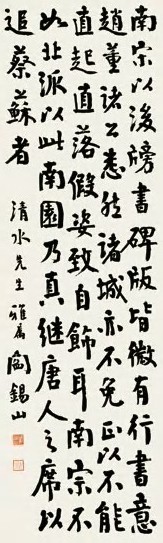 南宗以後牓書碑版皆微有行書意
趙董諸公悉然諸城亦不免正以不能
直起直落假姿致自飾耳南宗不
如北派以此南園乃真继唐人之席以
追蔡蘇者
清水先生雅属 閻錫山